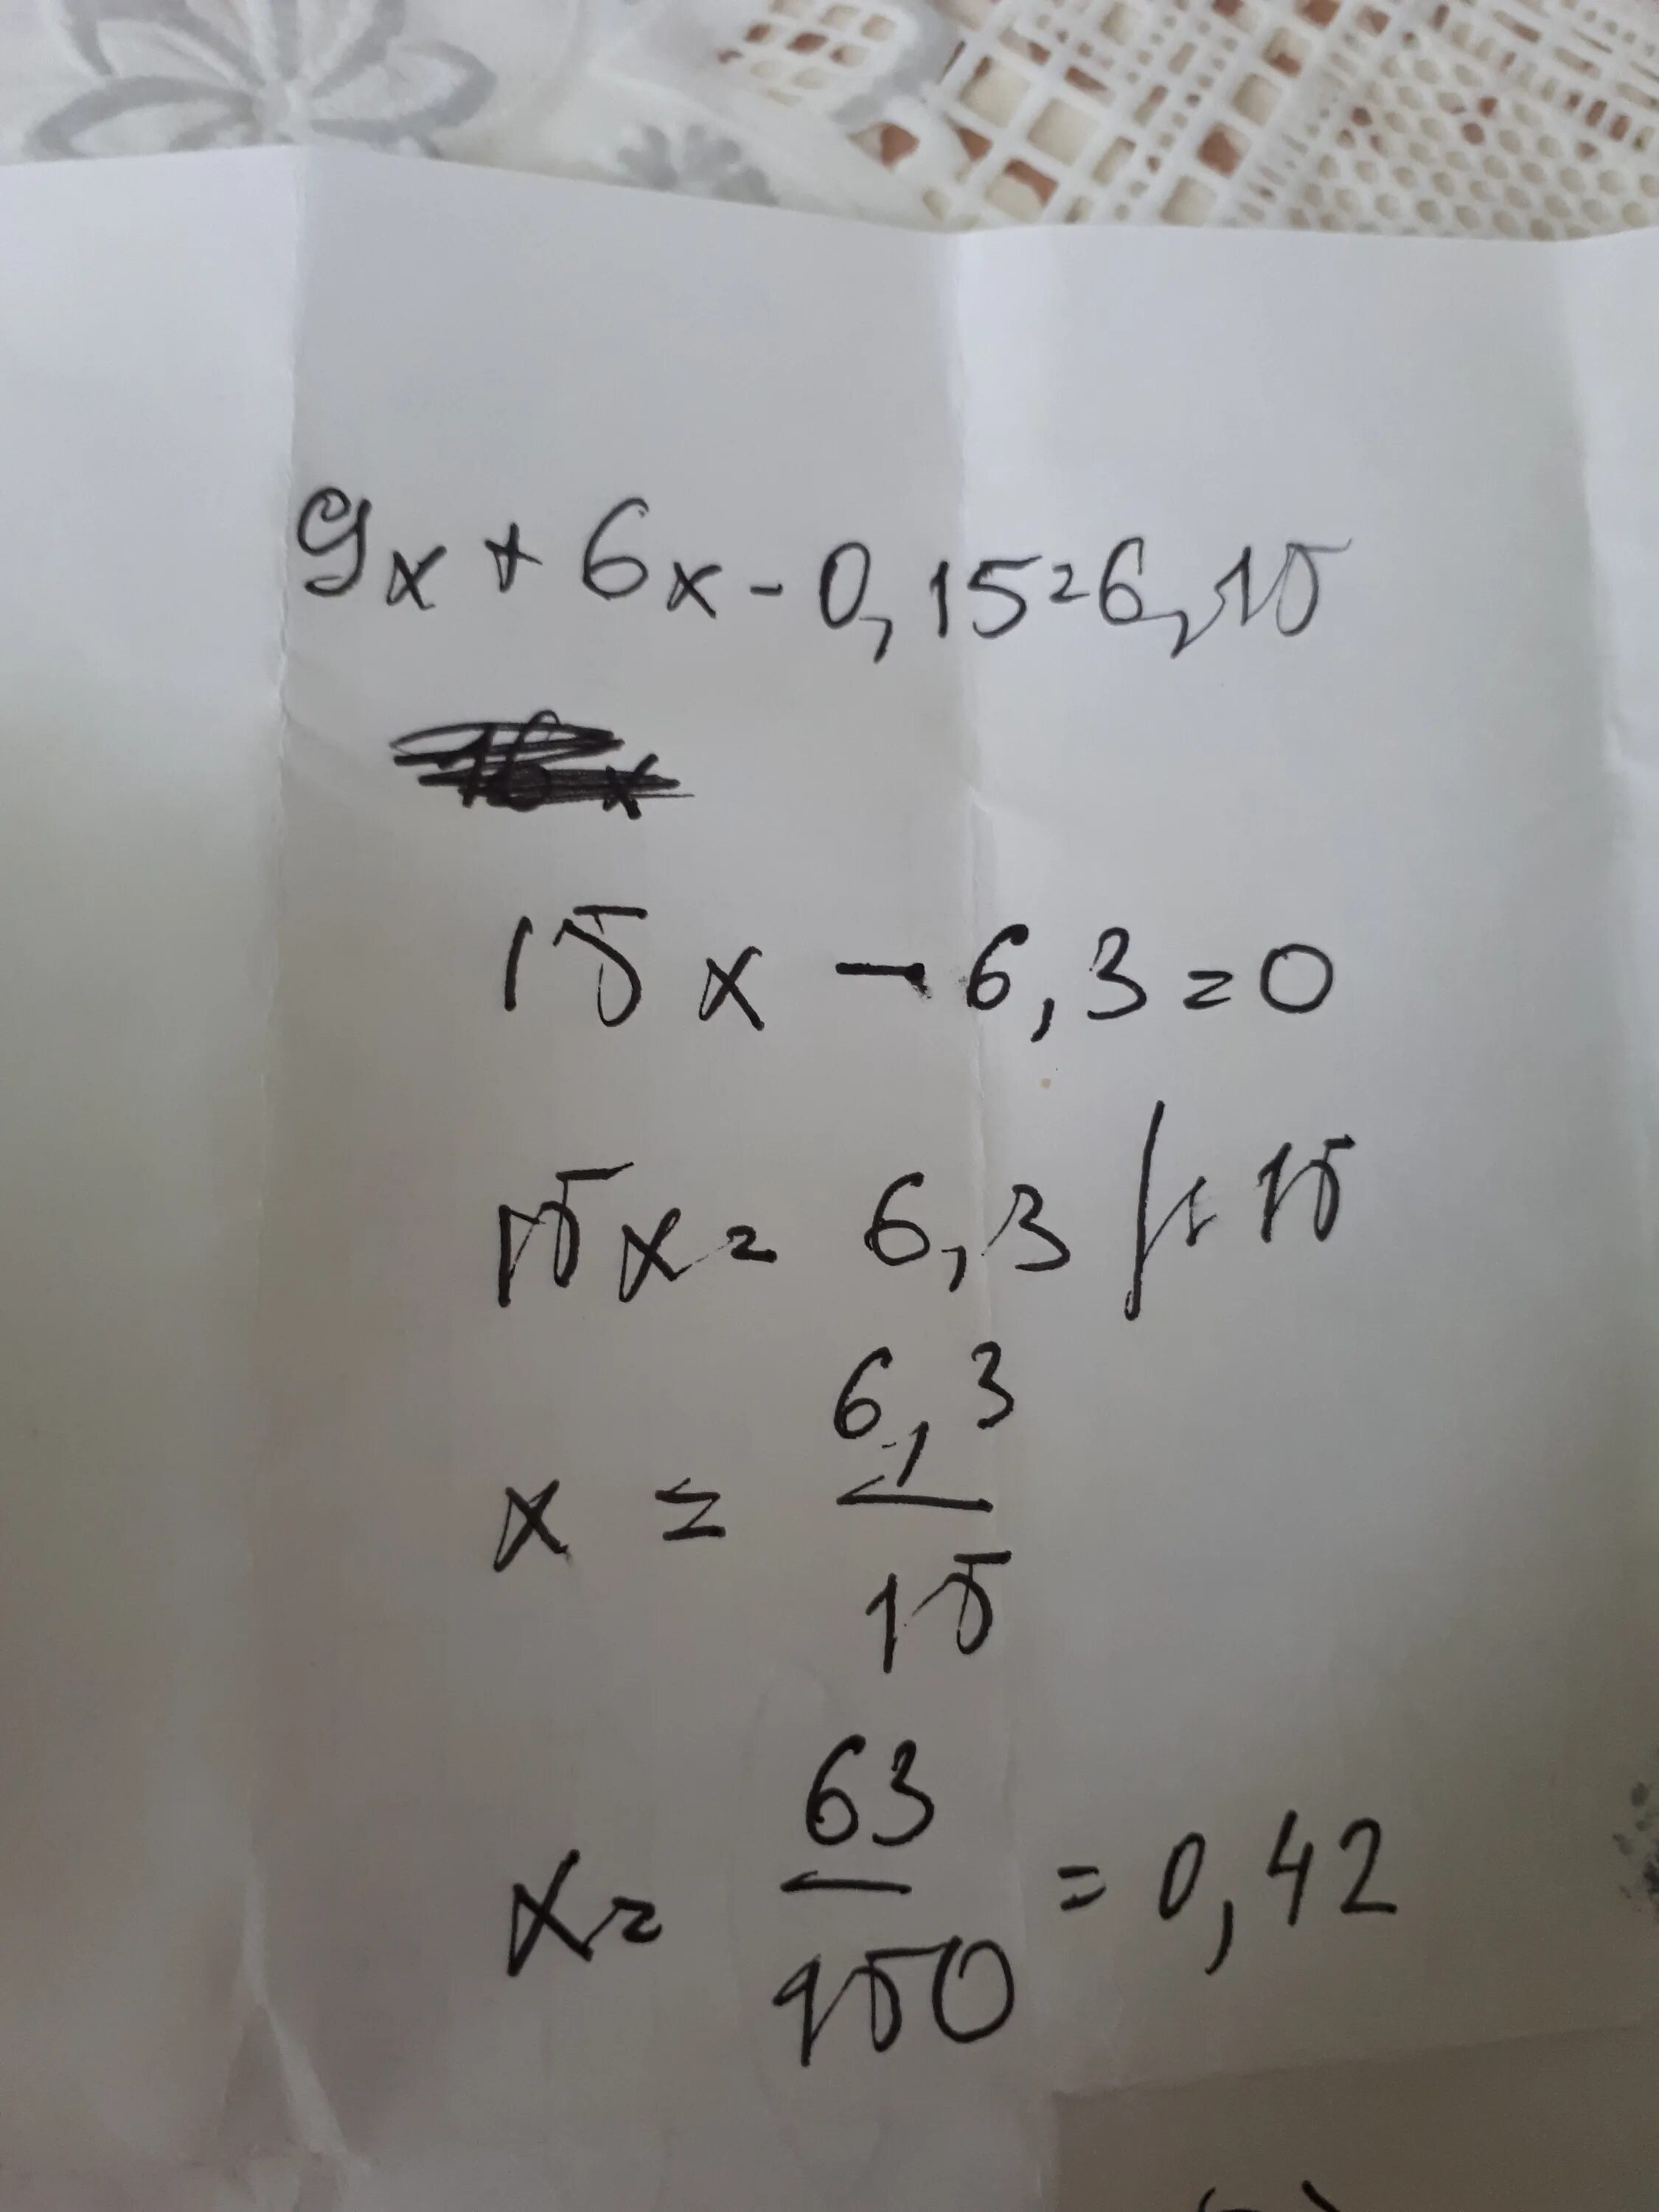 9x + 6x - 0,15=6,15
15x - 6,3=0
15x= 6,3 /: 15
x = 6,3
15
x= 63 = 0,42
150